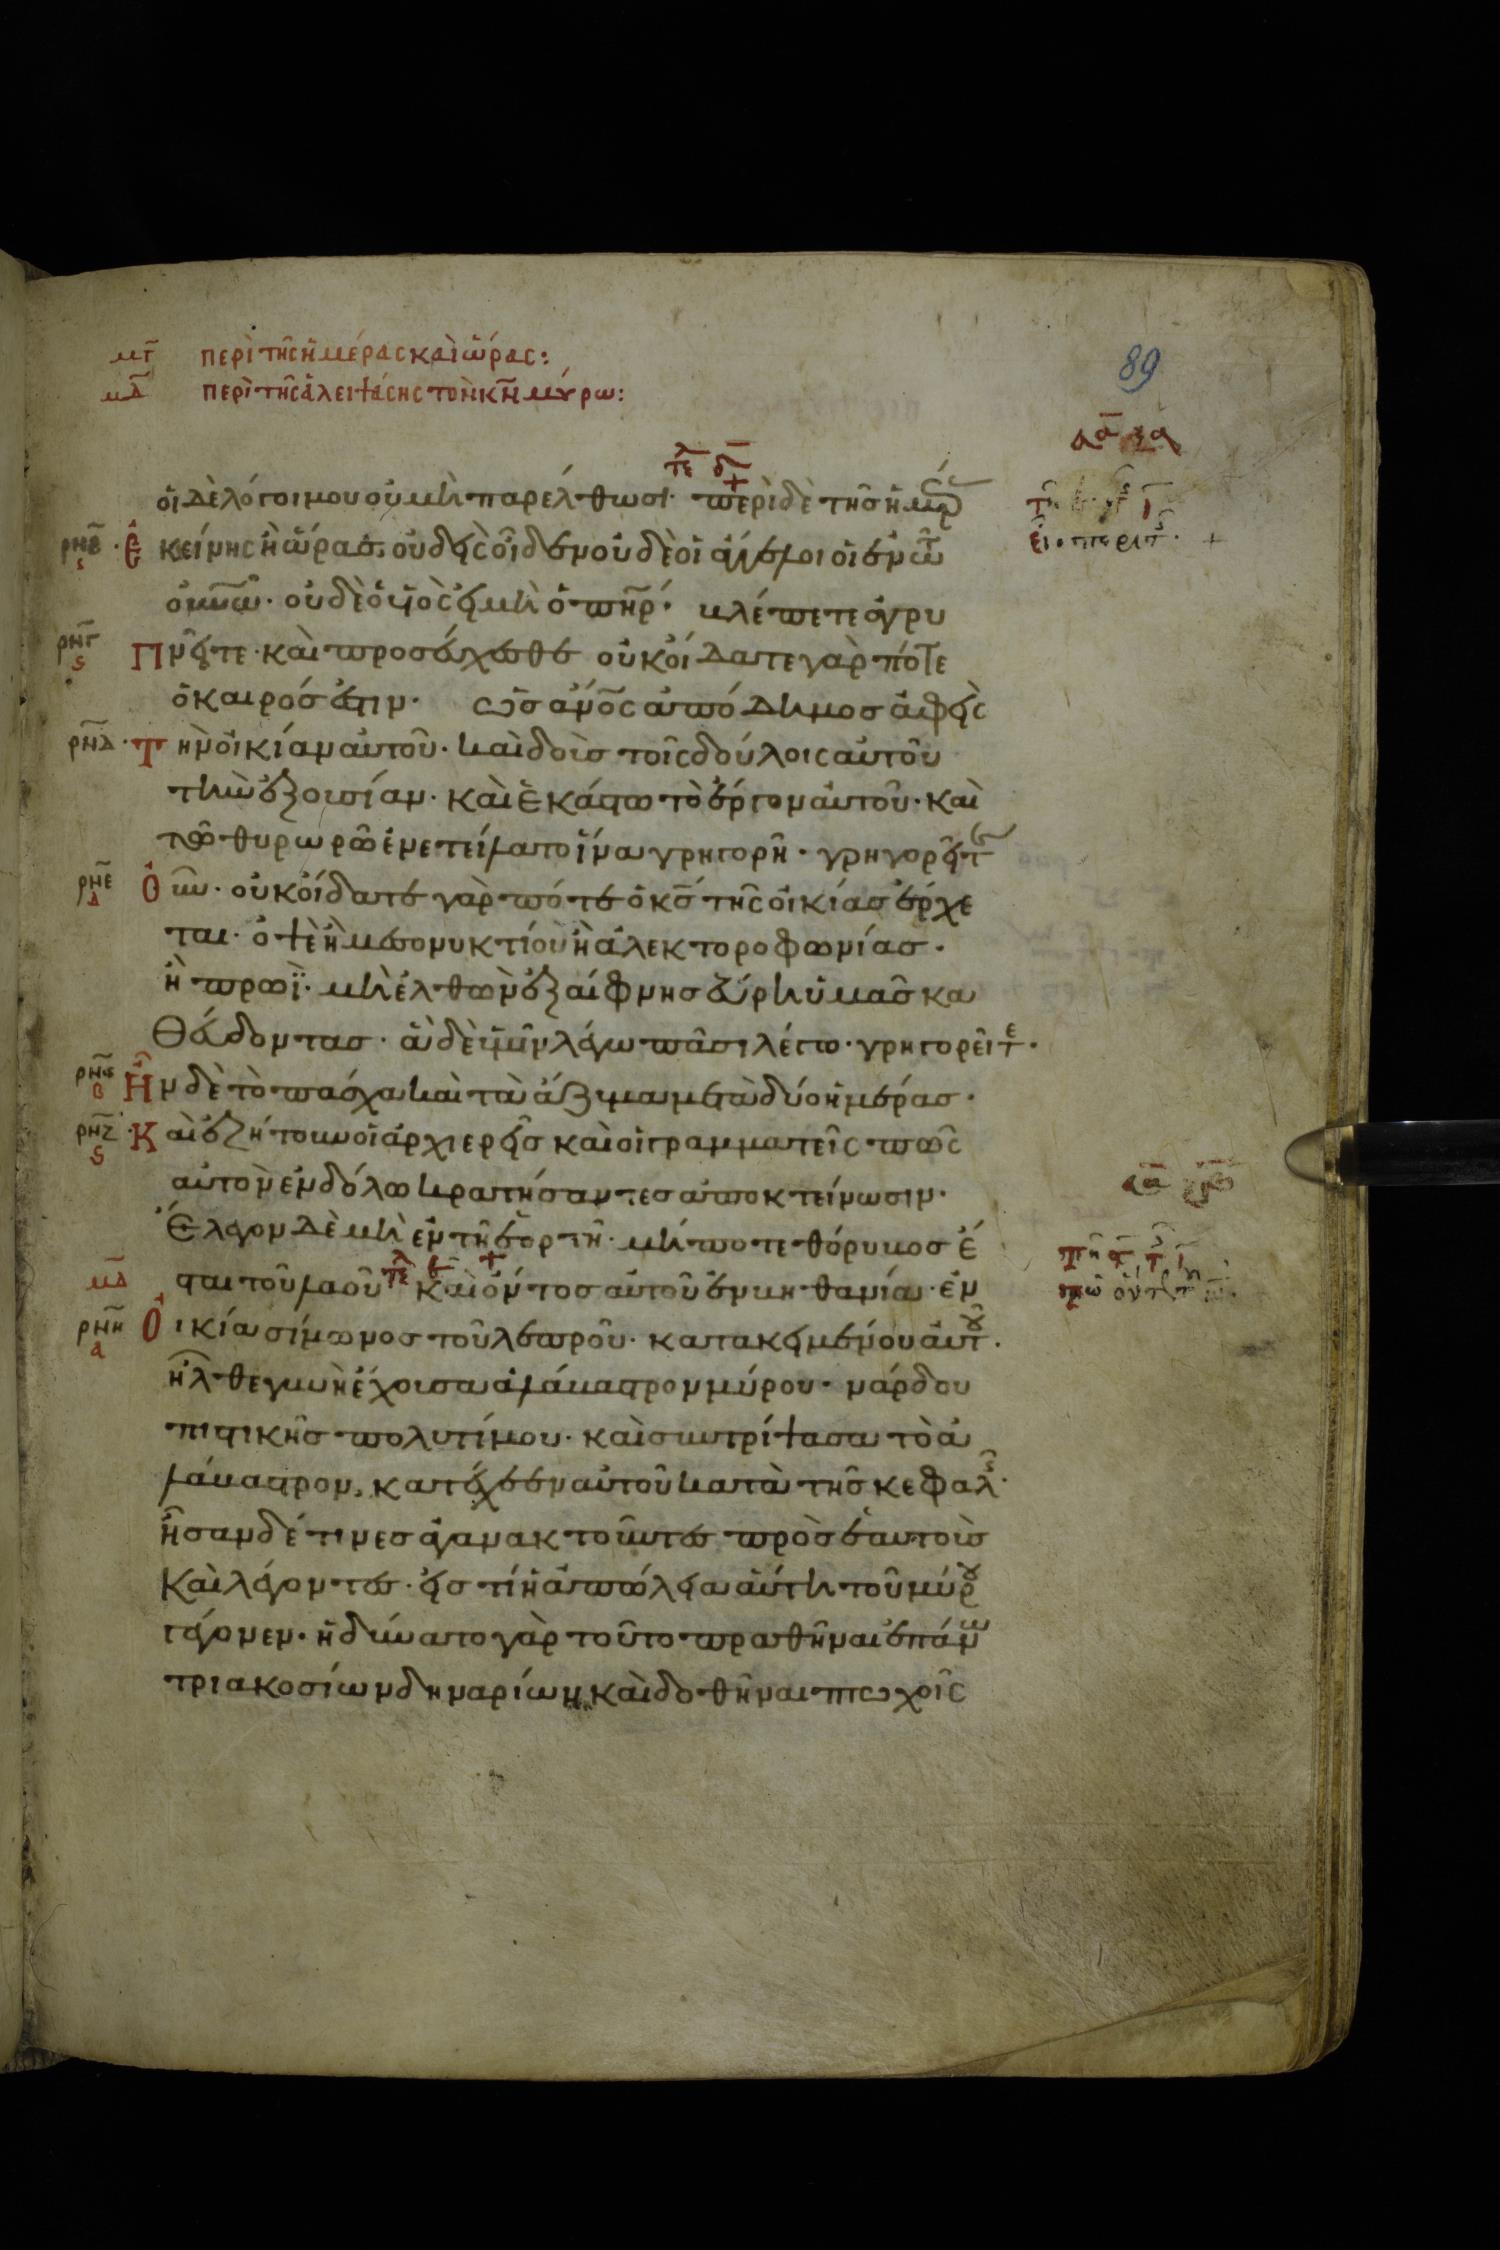 μγ περὶ τῆς ἡμέρας καὶ ὥρας:
μδ περὶ τῆς ἀλειψάσης τὸν κν μύρω:
89
οἱ δὲ λόγοι μου οὐ μὴ παρέλθωσι· περὶ δὲ τῆς ἡμέρ
ρνβ ς Ἐκείνης ἢ ὥρας, οὐδεὶς οἶδεν οὐδὲ οἱ ἄγγελοι οἱ ἐν τῶ
οὐνῶ· οὐδὲ ὁ υἱὸς εἰ μὴ ὁ πηρ· βλέπετε ἀγρυ
ρνγ ς Πνεῖτε καὶ προσεύχεσθε οὐκ οἴδατε γὰρ πότε
ὁ καιρός ἐστιν· ὡς ανος ἀπόδημος ἀφεὶς
ρνδ Τὴν οἰκίαν αὐτοῦ· καὶ δοὺς τοῖς δούλοις αὐτοῦ
τὴν ἐξουσίαν· καὶ ἑκάστω τὸ ἔργον αὐτοῦ· καὶ
τῶ θυρωρῶ ἐνετείλατο ἵνα γρηγορῆ· γρηγορεῖτ
ρνε δ Οὖν· οὐκ οἴδατε γὰρ πότε ὁ κς τῆς οἰκίας ἔρχε
ται· ὀψὲ ἢ μεσονυκτίου ἢ ἀλεκτοροφωνίας·
ἢ πρωῒ· μὴ ἐλθὼν ἐξαίφνης εὕρη ὑμᾶς κα
Θεύδοντας· ἃ δὲ ὑμῖν λέγω πᾶσι λέγω· γρηγορεῖτε·
ρνς α Ἦν δὲ τὸ πάσχα καὶ τὰ ἄζυμα μετὰ δύο ἡμέρας·
ρνζ ς Καὶ ἐζήτουν οἱ ἀρχιερεῖς καὶ οἱ γραμματεῖς πῶς
αὐτὸν ἐν δόλω κρατήσαντες ἀποκτείνωσιν·
Ἔλεγον δὲ μὴ ἐν τῆ ἑορτῆ· μήποτε θόρυβος ἔ
μδ σται τοῦ λαοῦ τε καὶ ὄντος αὐτοῦ ἐν βηθανία· ἐν
ρνη α Οἰκία σίμωνος τοῦ λεπροῦ· κατακειμένου αὐτοῦ·
ἦλθε γυνὴ ἔχουσα ἀλάβαστρον μύρου· νάρδου
πιστικῆς πολυτίμου· καὶ συντρίψασα τὸ ἀ
λάβαστρον, κατέχεεν αὐτοῦ κατὰ τῆς κεφαλ·
ἦσαν δέ τινες ἀγανακτοῦντες πρὸς ἑαυτοὺς
Καὶ λέγοντες· εἰς τί ἡ ἀπώλεια αὕτη τοῦ μύρου
γέγονεν· ἠδύνατο γὰρ τοῦτο πραθῆναι ἐπάνω
τριακοσίων δηναρίων, καὶ δοθῆναι πτωχοῖς